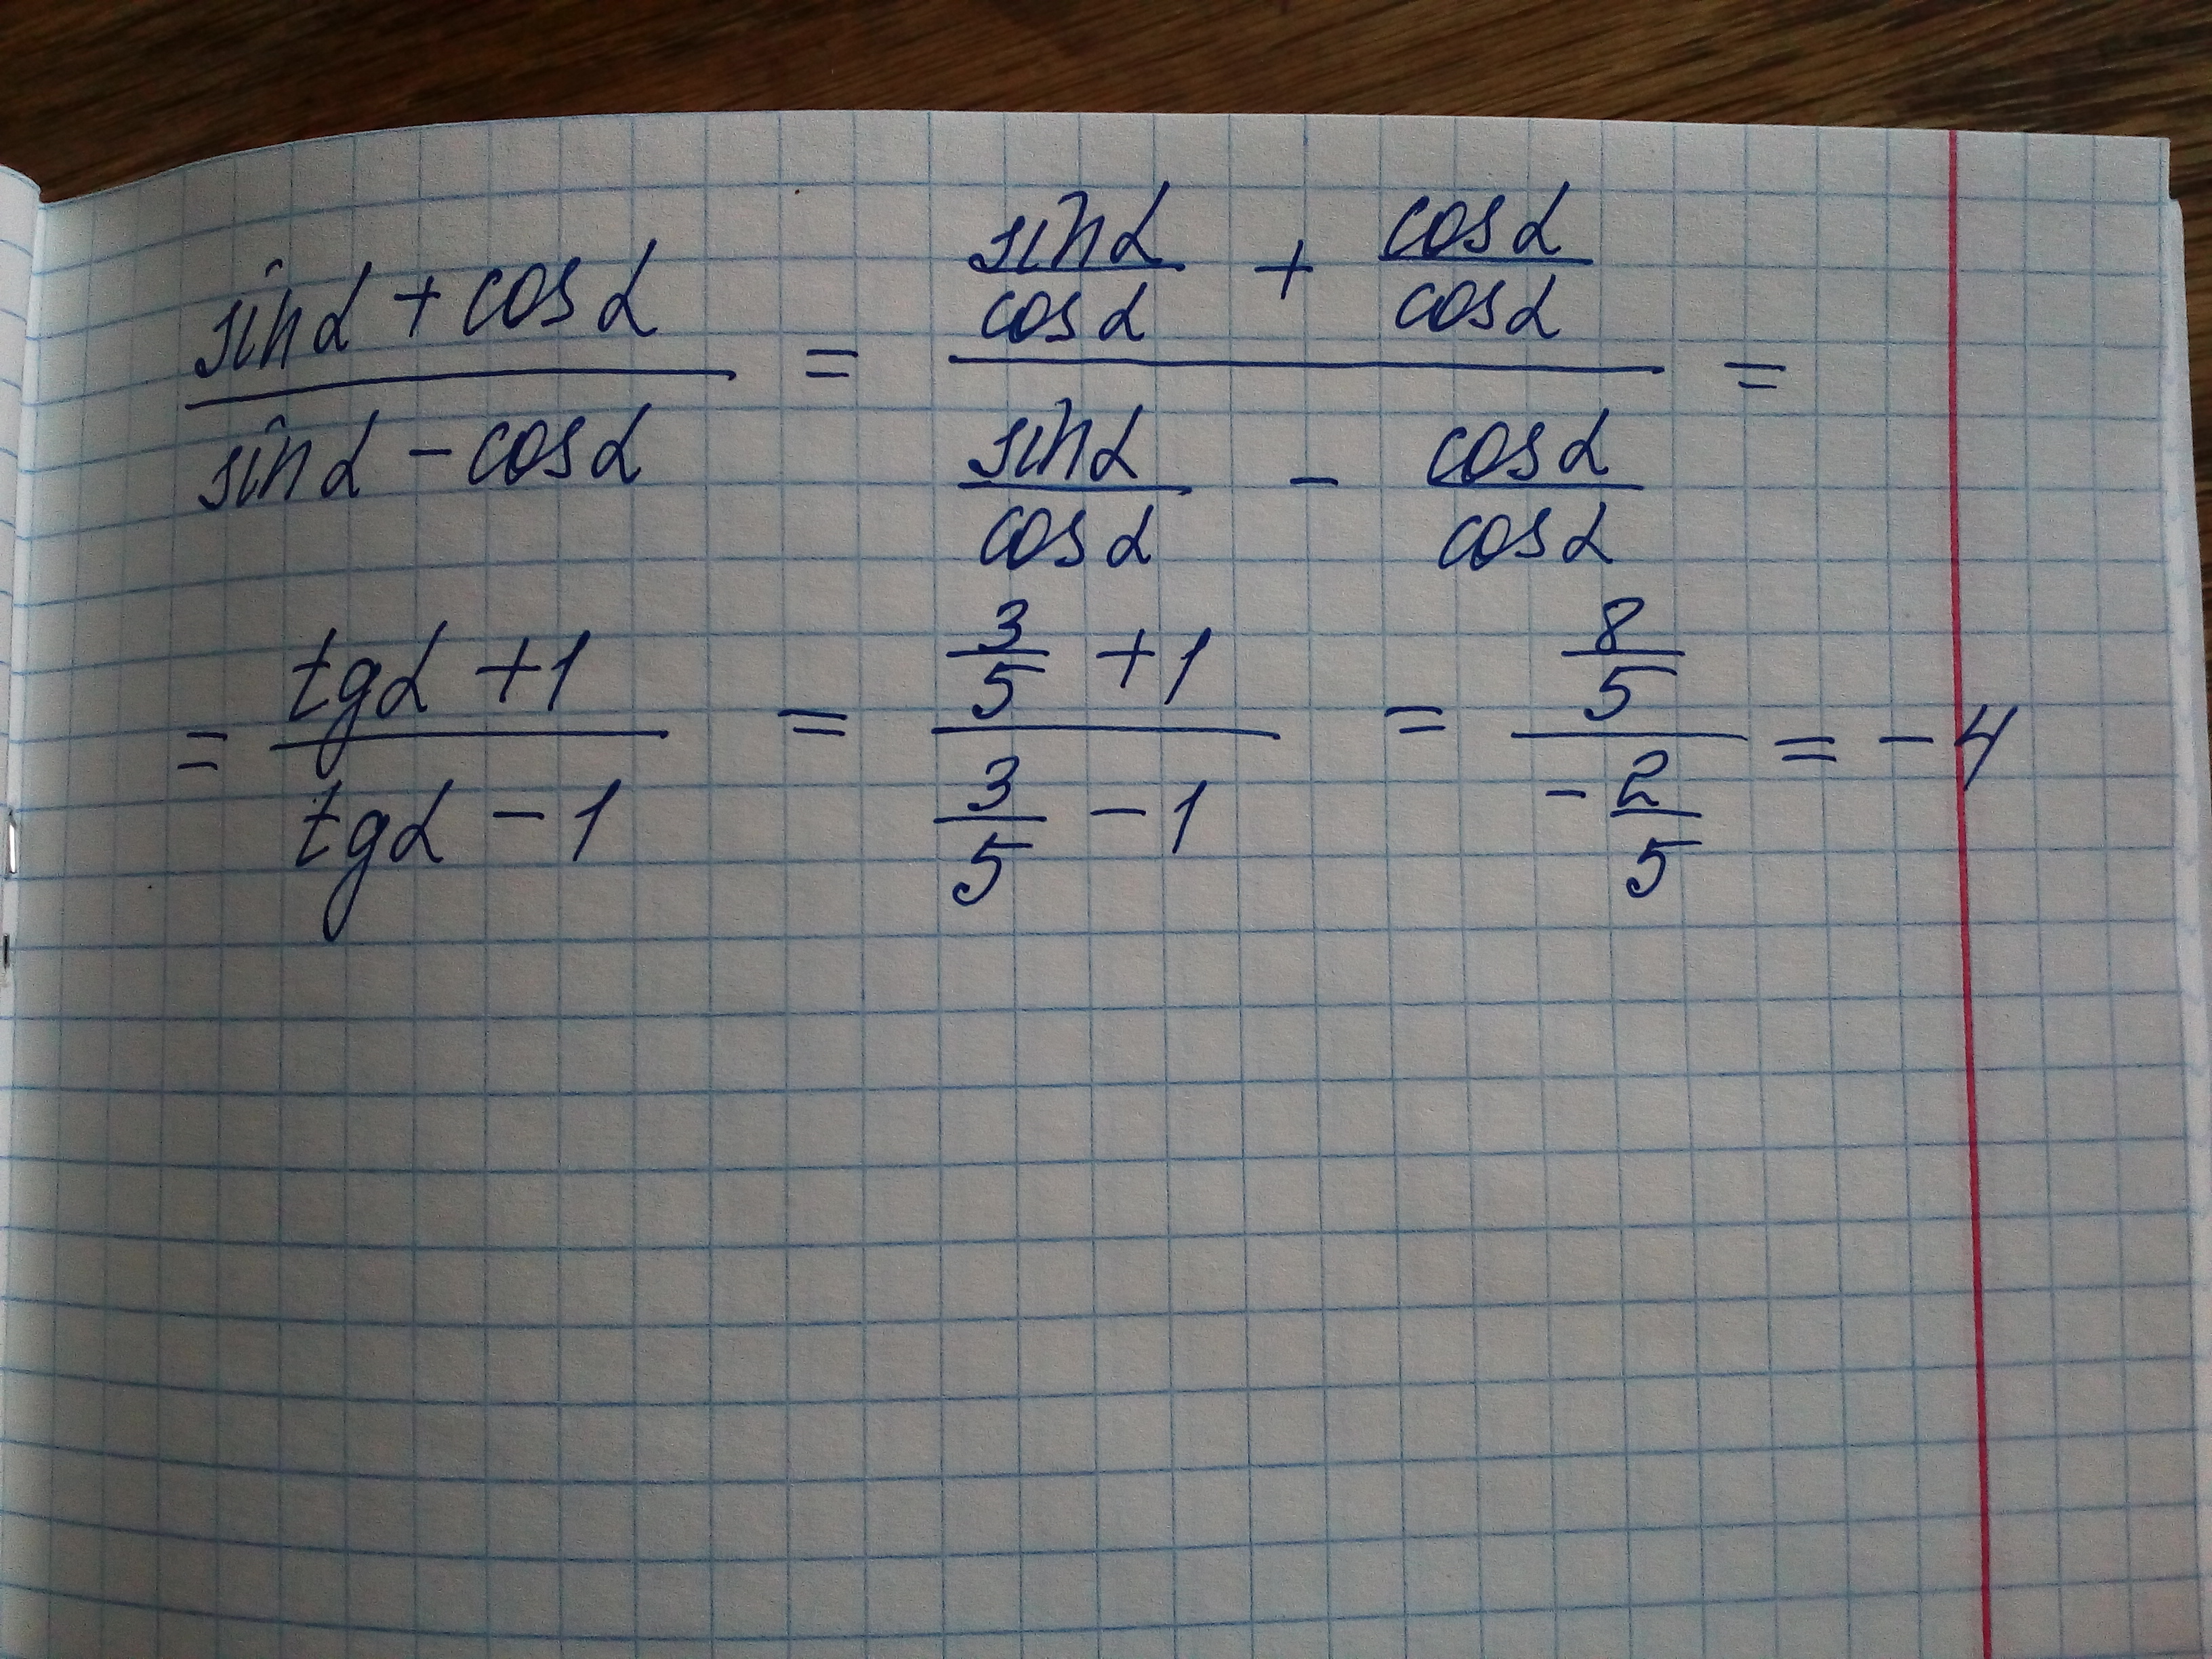 (sinα + cosα)/(sinα - cosα) = (sinα/cosα + cosα/cosα)/(sinα/cosα - cosα/cosα) =
= (tgα + 1)/(tgα - 1) = (3/5 + 1)/(3/5 - 1) = (8/5)/(-2/5) = -4